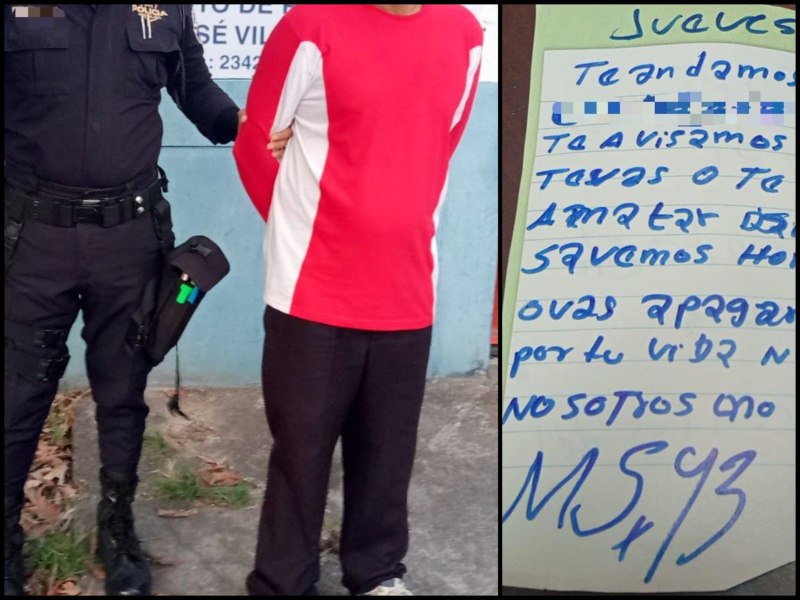 POLICIA
TO DE
SÉ VIL
: 2342
Jueves
Te andamos
Te Avisamos
Tevas o Te
Amatar
Savemos
ovas apagar
por tu vida N
Nosotros